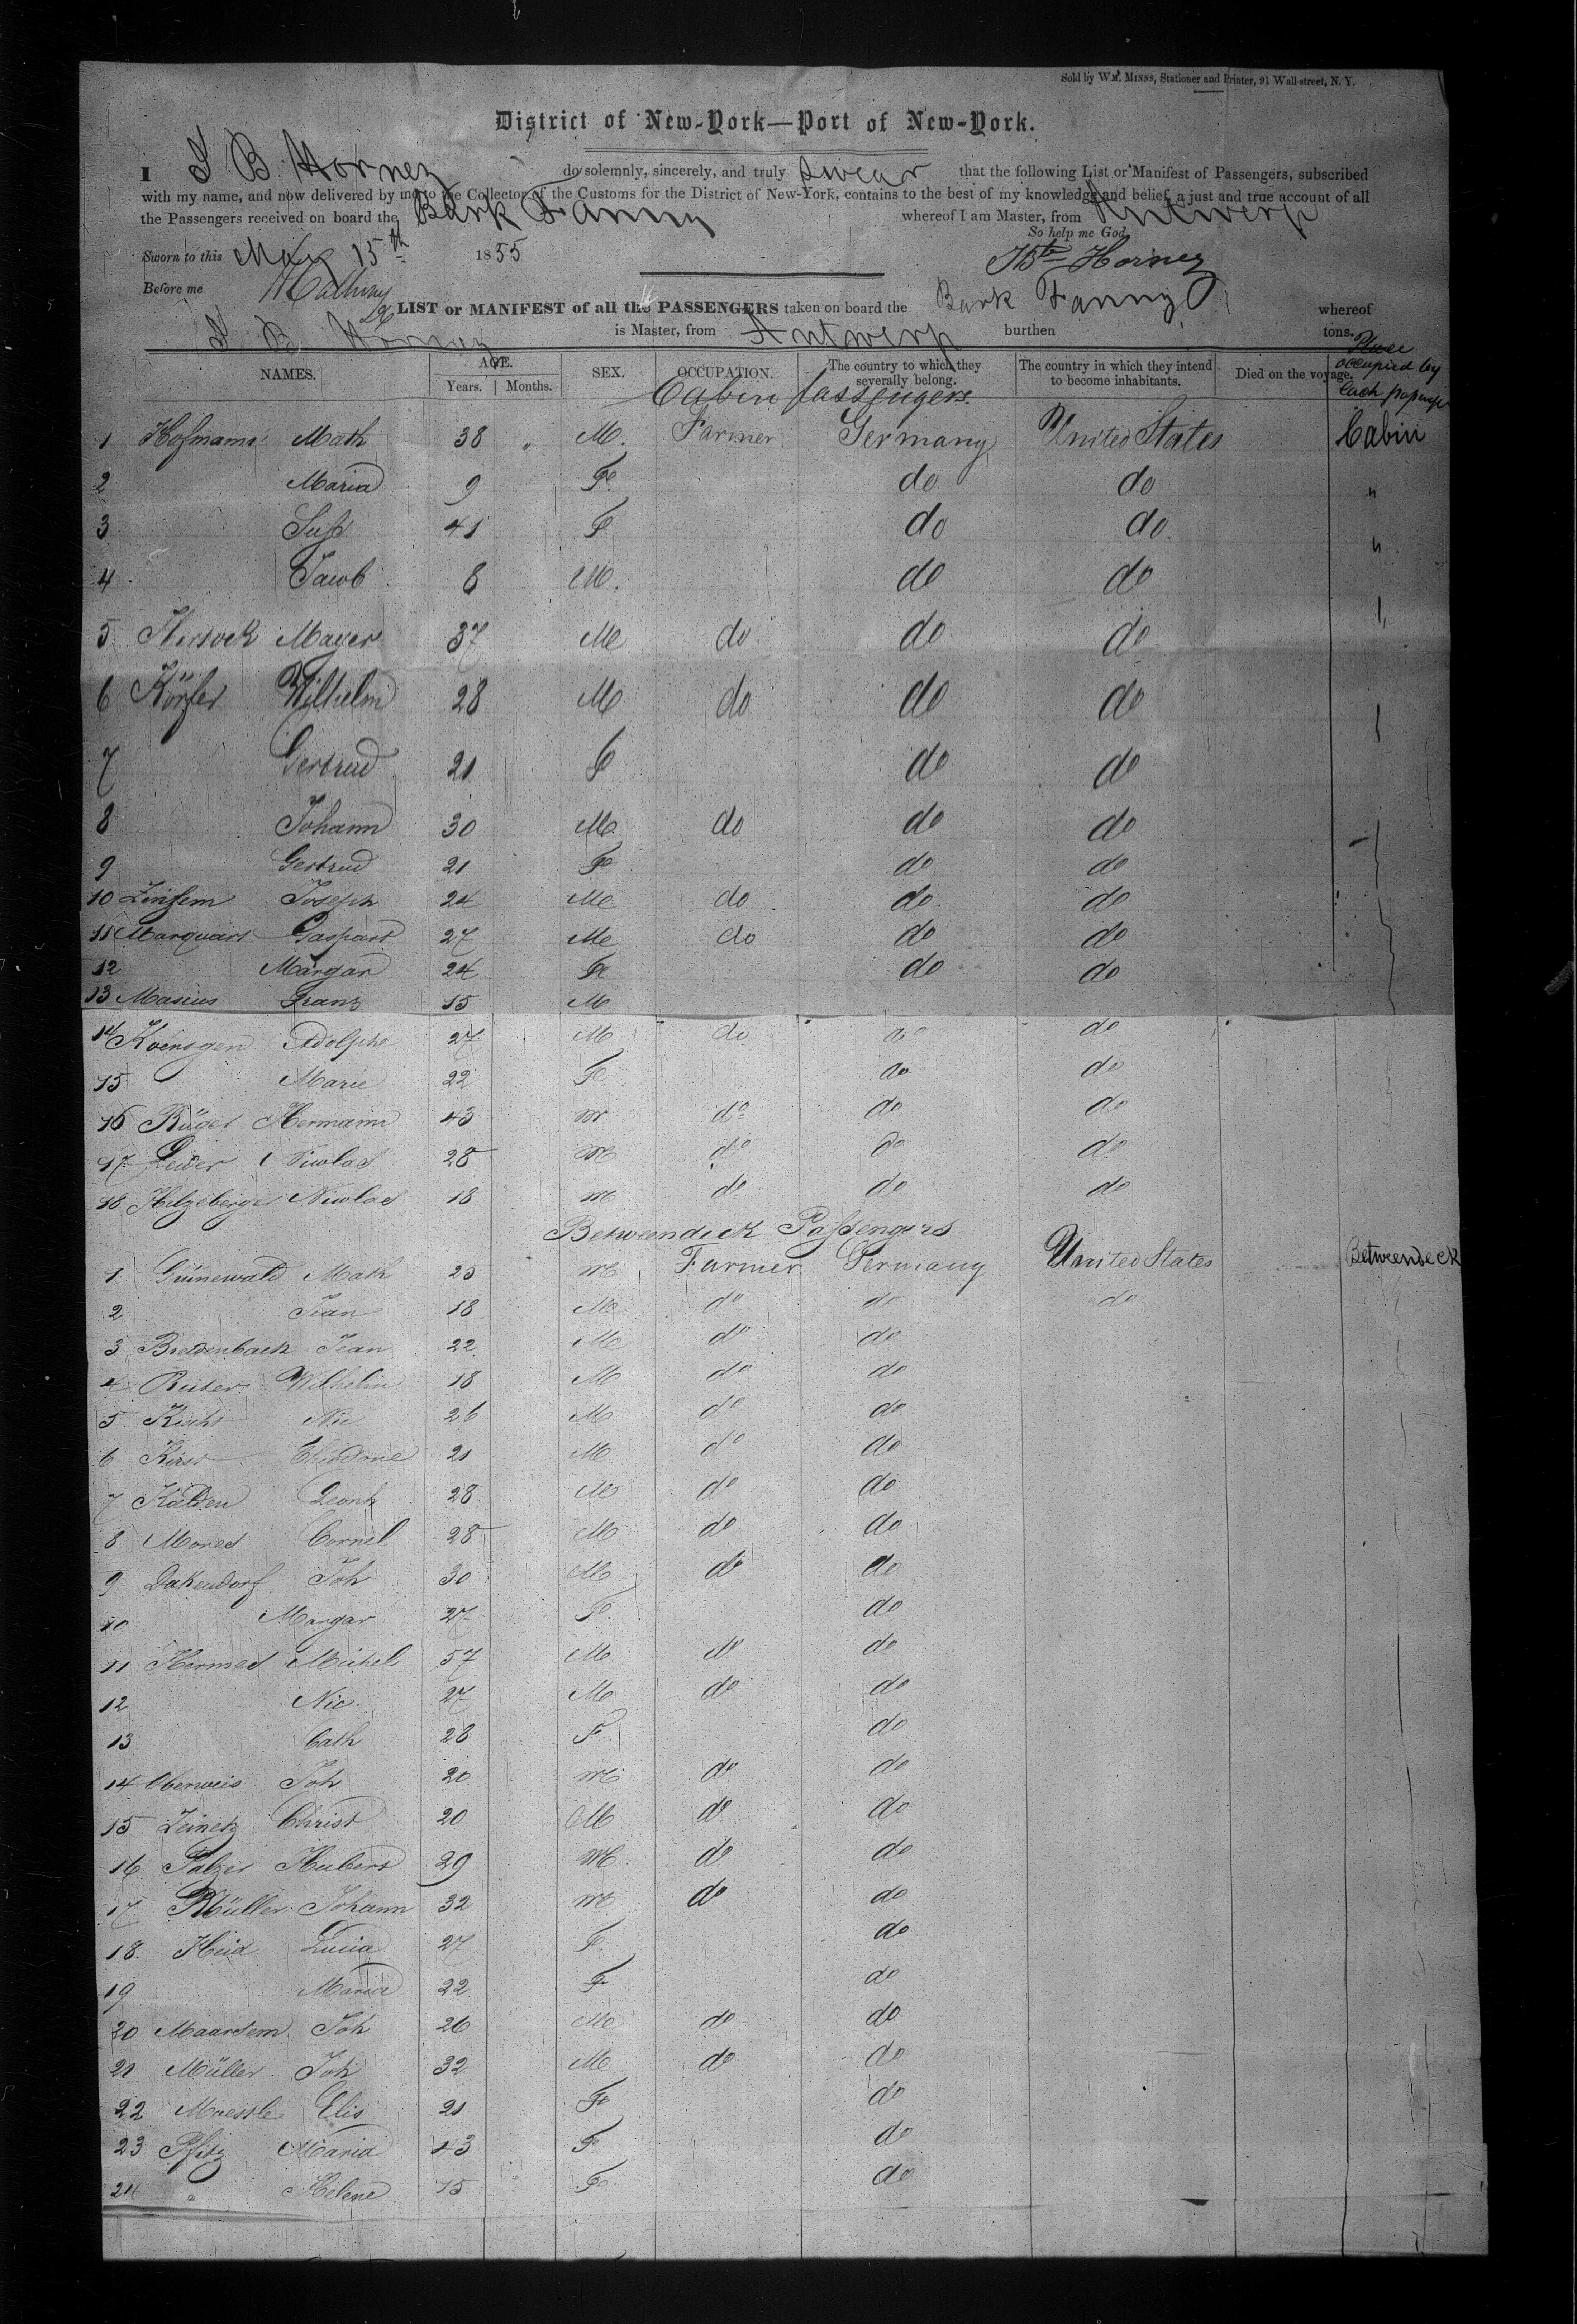 Sold by WM. MINNS, Stationer and Printer, 91 Wall-street, N. Y.
District of New-York—Port of New-York.
I J B Horney do solemnly, sincerely, and truly swear that the following List or Manifest of Passengers, subscribed
with my name, and now delivered by me to the Collector of the Customs for the District of New-York, contains to the best of my knowledge and belief, a just and true account of all
the Passengers received on board the Bark Fanny whereof I am Master, from Antwerp
So help me God
Sworn to this May 15th 1855 Horney
Before me
LIST or MANIFEST of all the PASSENGERS taken on board the Bark Fanny whereof
J B Horney is Master, from Antwerp burthen tons.
NAMES. AGE. Years. Months. SEX. OCCUPATION. The country to which they severally belong. The country in which they intend to become inhabitants. Died on the voyage. Place occupied by each passenger
Cabin passengers
1 Hofmann Math 38 " M. Farmer Germany United States Cabin
2 Maria 9 Fe. do do "
3 Sus 41 Fe do do "
4 Jacob 8 M. do do
5 Mayer 37 Me do do do
6 Körfer Wilhelm 28 M do do do
7 Gertrud 21 Fe do do
8 Johann 30 Me do do do
9 Gertrud 21 Fe do do
10 Joseph 24 Me do do do
11 Marquart Gaspard 27 Me do do do
12 Margar 24 Fe do do
13 Masius Franz 15 M
14 Koensgen Adolphe 27 M. do do do
15 Marie 22 Fe. do do
16 Rüger Hermann 43 m do do do
17 Leider Nicolas 28 m do do do
18 Hilzeberger Nicolas 18 m do do do
Betweendeck Passengers
1 Grünewald Math 25 m Farmer Germany United States Betweendeck
2 Jean 18 Me do do do
3 Breidenback Jean 22 Me do do
4 Reiser Wilhelm 18 M do do
5 Nic 26 M do do
6 Kirst Theodore 21 M do do
7 Kalden Leonh 28 M do do
8 Mores Cornel 28 M do do
9 Dakendorf Joh 30 Me do do
10 Margar 27 Fe. do
11 Hermes Michel 57 M do do
12 Nic. 27 M do do
13 Cath 28 F do
14 Oberweis Joh 20 m do do
15 Leinetz Christ 20 M do do
16 Salzer Hubert 29 M do do
17 Müller Johann 32 m do do
18 Heid Lucia 27 Fe. do
19 Maria 22 F do
20 Maardem Joh 26 Me do do
21 Müller Joh 32 M do do
22 Elis 21 Fe do
23 Pfitz Maria 43 Fe do
24 " Helene 15 Fe do